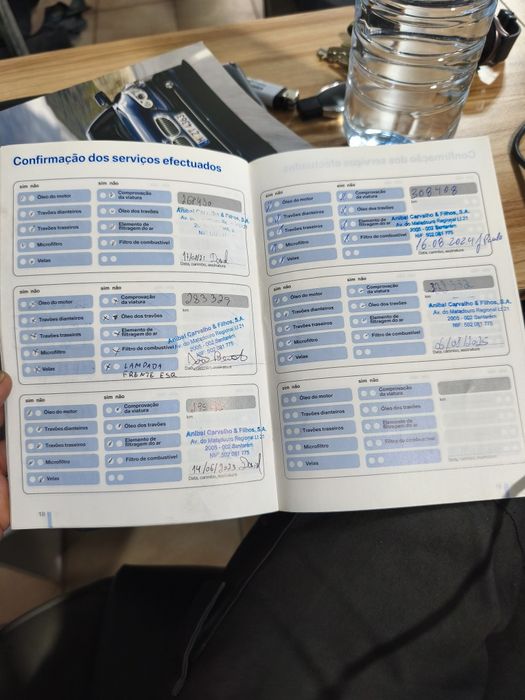 Confirmação dos serviços efectuados
sim não
sim não
Óleo do motor
Comprovação da viatura
Travões dianteiros
Óleo dos travões
Travões traseiros
Elemento de filtragem do ar
Microfiltro
Filtro de combustível
Velas
km
Anibal Carvalho & Filhos, S.A.
Data, carimbo, assinatura
sim não
sim não
Óleo do motor
Comprovação da viatura
283 329
Travões dianteiros
Óleo dos travões
km
Travões traseiros
Elemento de filtragem do ar
Microfiltro
Filtro de combustível
Velas
LAMPADA
FRENTE ESQ
Anibal Carvalho & Filhos, S.A.
Av. do Matadouro Regional Lt 21
2005 - 002 Santarém
NIF: 502 081 775
Data, carimbo, assinatura
sim não
sim não
Óleo do motor
Comprovação da viatura
Travões dianteiros
Óleo dos travões
km
Travões traseiros
Elemento de filtragem do ar
Microfiltro
Filtro de combustível
Velas
Anibal Carvalho & Filhos, S.A.
Av. do Matadouro Regional Lt 21
2005 - 002 Santarém
NIF: 502 081 775
14/06/2023
Data, carimbo, assinatura
18
sim não
sim não
Óleo do motor
Comprovação da viatura
308408
Travões dianteiros
Óleo dos travões
km
Travões traseiros
Elemento de filtragem do ar
Microfiltro
Filtro de combustível
Velas
Anibal Carvalho & Filhos, S.A.
Av. do Matadouro Regional Lt 21
2005 - 002 Santarém
NIF: 502 081 775
16.08.2024
Data, carimbo, assinatura
sim não
sim não
Óleo do motor
Comprovação da viatura
Travões dianteiros
Óleo dos travões
km
Travões traseiros
Elemento de filtragem do ar
Microfiltro
Filtro de combustível
Velas
Anibal Carvalho & Filhos, S.A.
Av. do Matadouro Regional Lt 21
2005 - 002 Santarém
NIF: 502 081 775
Data, carimbo, assinatura
sim não
sim não
Óleo do motor
Comprovação da viatura
Travões dianteiros
Óleo dos travões
km
Travões traseiros
Elemento de filtragem do ar
Microfiltro
Filtro de combustível
Velas
Data, carimbo, assinatura